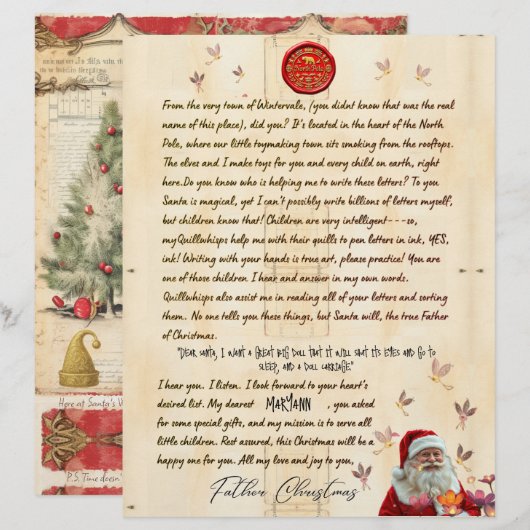 North Pole
From the very town of Wintervale, (you didnt know that was the real
name of this place), did you? It's located in the heart of the North
Pole, where our little toymaking town sits smoking from the rooftops.
The elves and I make toys for you and every child on earth, right
here.Do you know who is helping me to write these letters? To you
Santa is magical, yet I can't possibly write billions of letters myself,
but children know that! Children are very intelligent---so,
myQuillwhisps help me with their quills to pen letters in ink, YES,
ink! Writing with your hands is true art, please practice! You are
one of those children I hear and answer in my own words.
Quillwhisps also assist me in reading all of your letters and sorting
them. No one tells you these things, but Santa will, the true Father
of Christmas.
"Dear Santa, I want a great big doll that it will shut its eyes and go to
sleep, and a doll carriage"
I hear you. I listen. I look forward to your heart's
desired list. My dearest MARYANN , you asked
for some special gifts, and my mission is to serve all
little children. Rest assured, this Christmas will be a
happy one for you. All my love and joy to you,
Father Christmas
Here at Santa's
P.S. Time doesn